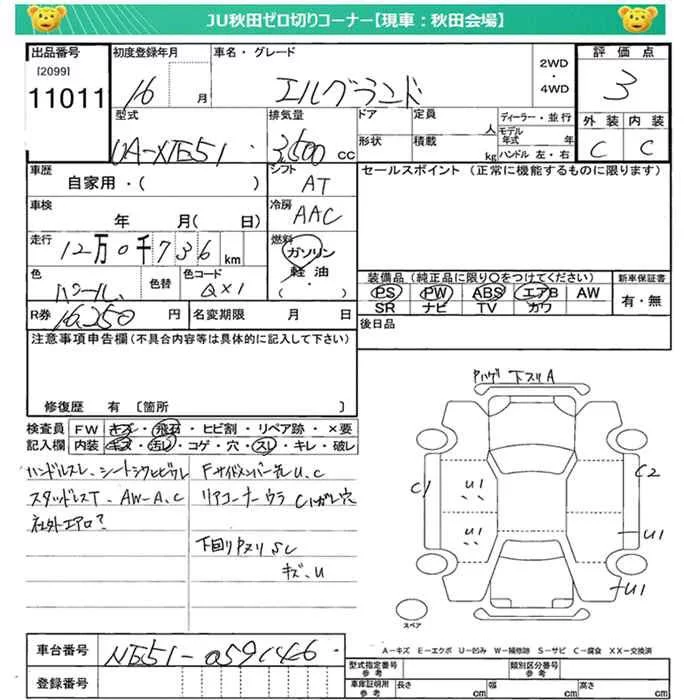 JU秋田ゼロ切りコーナー【現車：秋田会場】
出品番号 初度登録年月 車名・グレード 2WD・4WD 評価点
[2099]
11011 16 月 エルグランド 3
型式 排気量 ドア 定員 人 ディーラー・並行 外装 内装
UA-NE51 3,500 cc 形状 積載 kg モデル年式 年 ハンドル 左・右 C C
車歴 自家用・( ) シフト AT セールスポイント (正常に機能するものに限ります)
車検 年 月( 日) 冷房 AAC
走行 12万0千736 km 燃料 ガソリン 軽油 ( ・ )
色 パール 色替 色コード QX1 装備品 (純正品に限り○をつけてください) 新車保証書
PS PW ABS エアB AW 有・無
SR ナビ TV カワ
R券 16,250 円 名変期限 月 日 後日品
注意事項申告欄(不具合内容等は具体的に記入して下さい)
修復歴 有 [箇所 ]
Pハゲ 下スリA
検査員 FW キズ・飛石・ヒビ割・リペア跡・×要
記入欄 内装 キズ・汚レ・コゲ・穴・スレ・キレ・破レ
ハンドルスレ、シート
Fサイドメンバー先U.C
スタッドレスT、AW-A.C
リアコーナーウラ Cハガレ穴
社外エアロ?
下回りPヌリSC
キズ、U
C1 U1 C2
U1 U1
U1
スペア
A－キズ E－エクボ U－凹み W－補修跡 S－サビ C－腐食 XX－交換済
車台番号 NE51-059146 型式指定番号 参考 類別区分番号 参考
登録番号 車庫証明用 参考 長さ cm 幅 cm 高さ cm